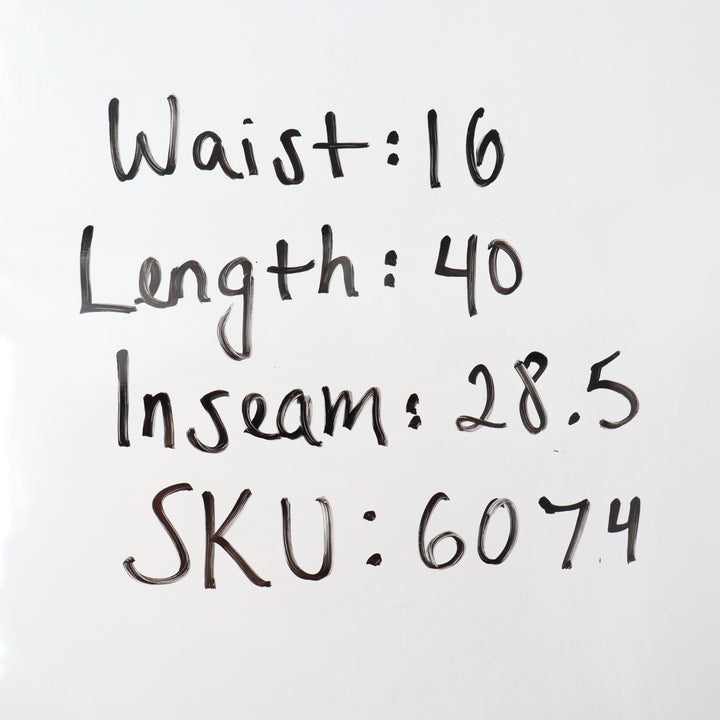 Waist: 16
Length: 40
Inseam: 28.5
SKU: 6074